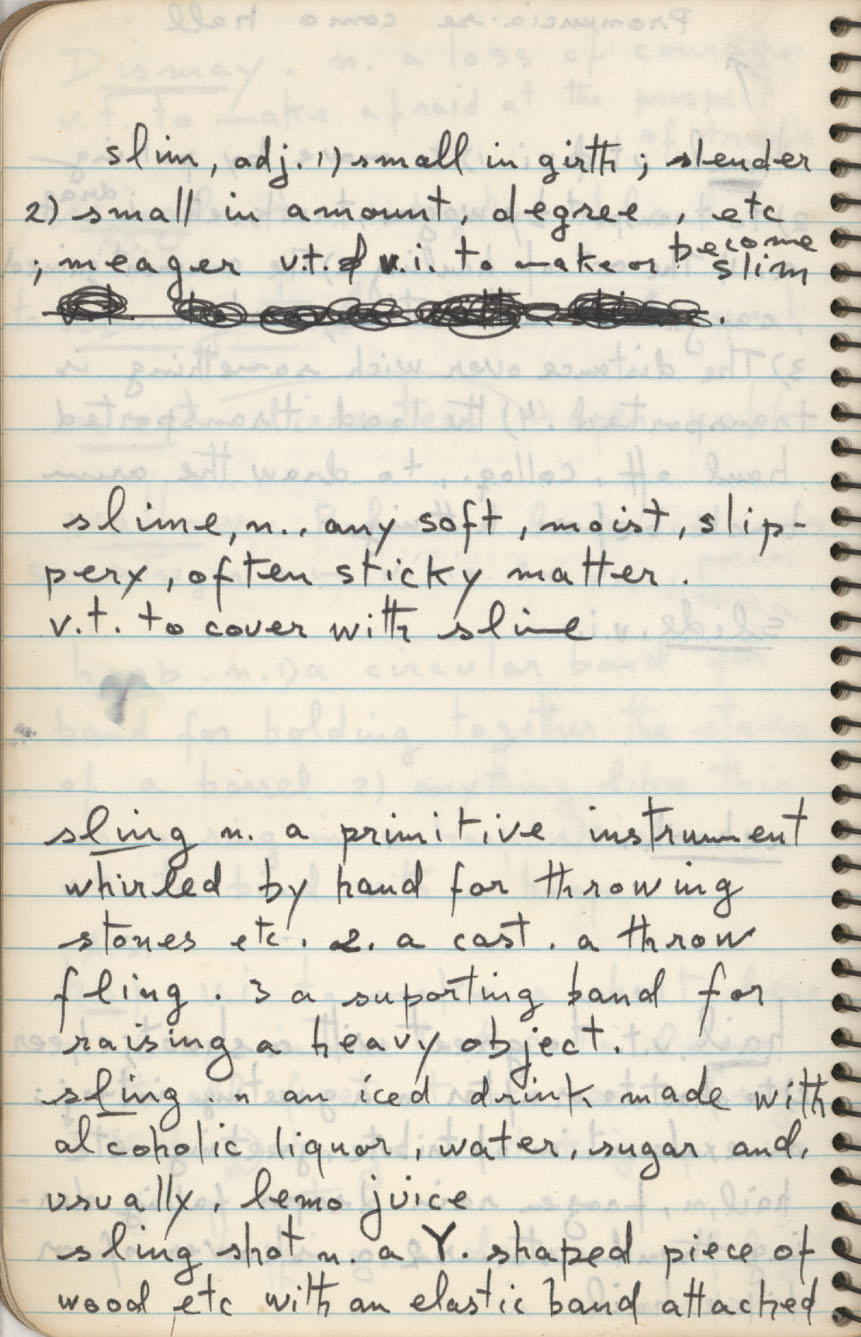 slim, adj. 1) small in girth ; slender
2) small in amount, degree, etc
; meager v.t. & v.i. to make or become slim
slime, n., any soft, moist, slip-
pery, often sticky matter.
v.t. to cover with slime
sling n. a primitive instrument
whirled by hand for throwing
stones etc. 2. a cast. a throw
fling. 3 a suporting band for
raising a heavy object.
sling. n an iced drink made with
alcoholic liquor, water, sugar and,
usually, lemo juice
sling shot n. a Y. shaped piece of
wood, etc with an elastic band attached